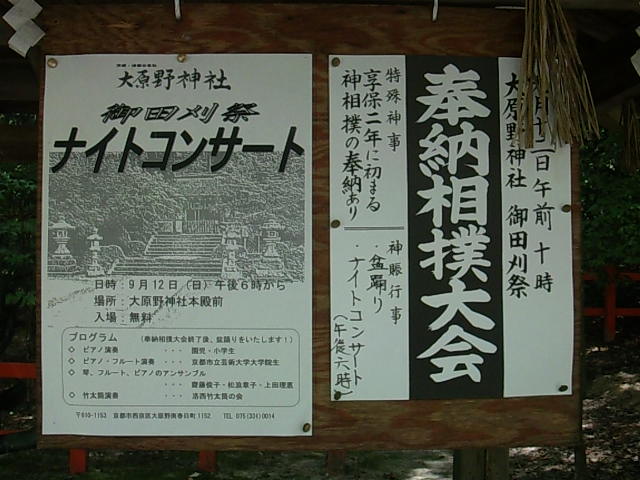 大原野神社
御田刈祭
ナイトコンサート
日時：9月12日（日）午後6時から
場所：大原野神社本殿前
入場：無料
プログラム　（奉納相撲大会終了後、盆踊りをいたします！）
◇ ピアノ演奏　・・・　園児・小学生
◇ ピアノ・フルート演奏　・・・　京都市立芸術大学大学院生
◇ 琴、フルート、ピアノのアンサンブル
・・・　齋藤俊子・松浪章子・上田理恵
◇ 竹太筒演奏　・・・　洛西竹太筒の会
〒610-1153　京都市西京区大原野南春日町1152　TEL 075(331)0014
月十二日午前十時
大原野神社 御田刈祭
奉納相撲大会
特殊神事
享保二年に初まる
神相撲の奉納あり
神賑行事
・盆踊り
・ナイトコンサート
（午後六時）